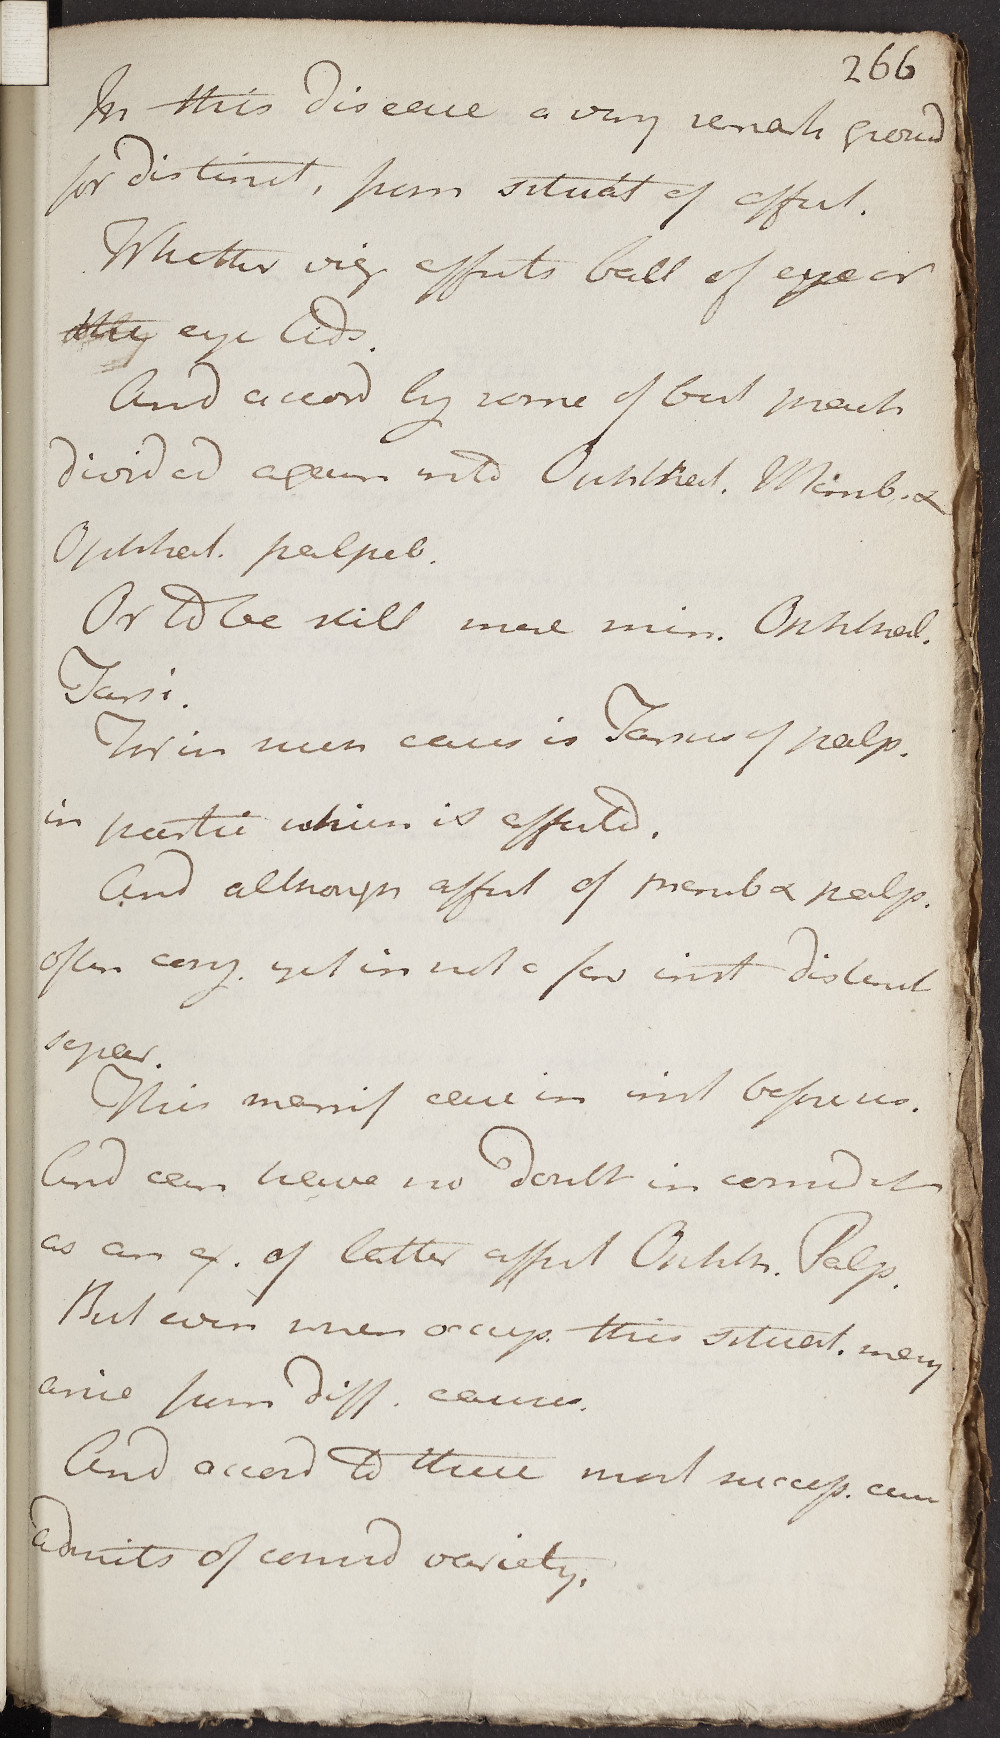 266
In this disease a very remark ground
for distinct, from situat of affect.
Whether viz affects ball of eye or
eye lids.
And accord by some of best pract
divided again into Ophthal. Memb. &
Ophthal. palpeb.
Or to be still more min. Ophthal.
Tarsi.
For in such cases is Tarsus of palp.
in partic which is affected.
And although affect of memb & palp.
often conj. yet in not a few inst distinct
separ.
This manif case in inst before us.
And can have no doubt in consid it
as an ex. of latter affect Ophth. Palp.
But even when occup. this situat. may
arise from diff. causes.
And accord to these most success. cure
admits of consid variety.